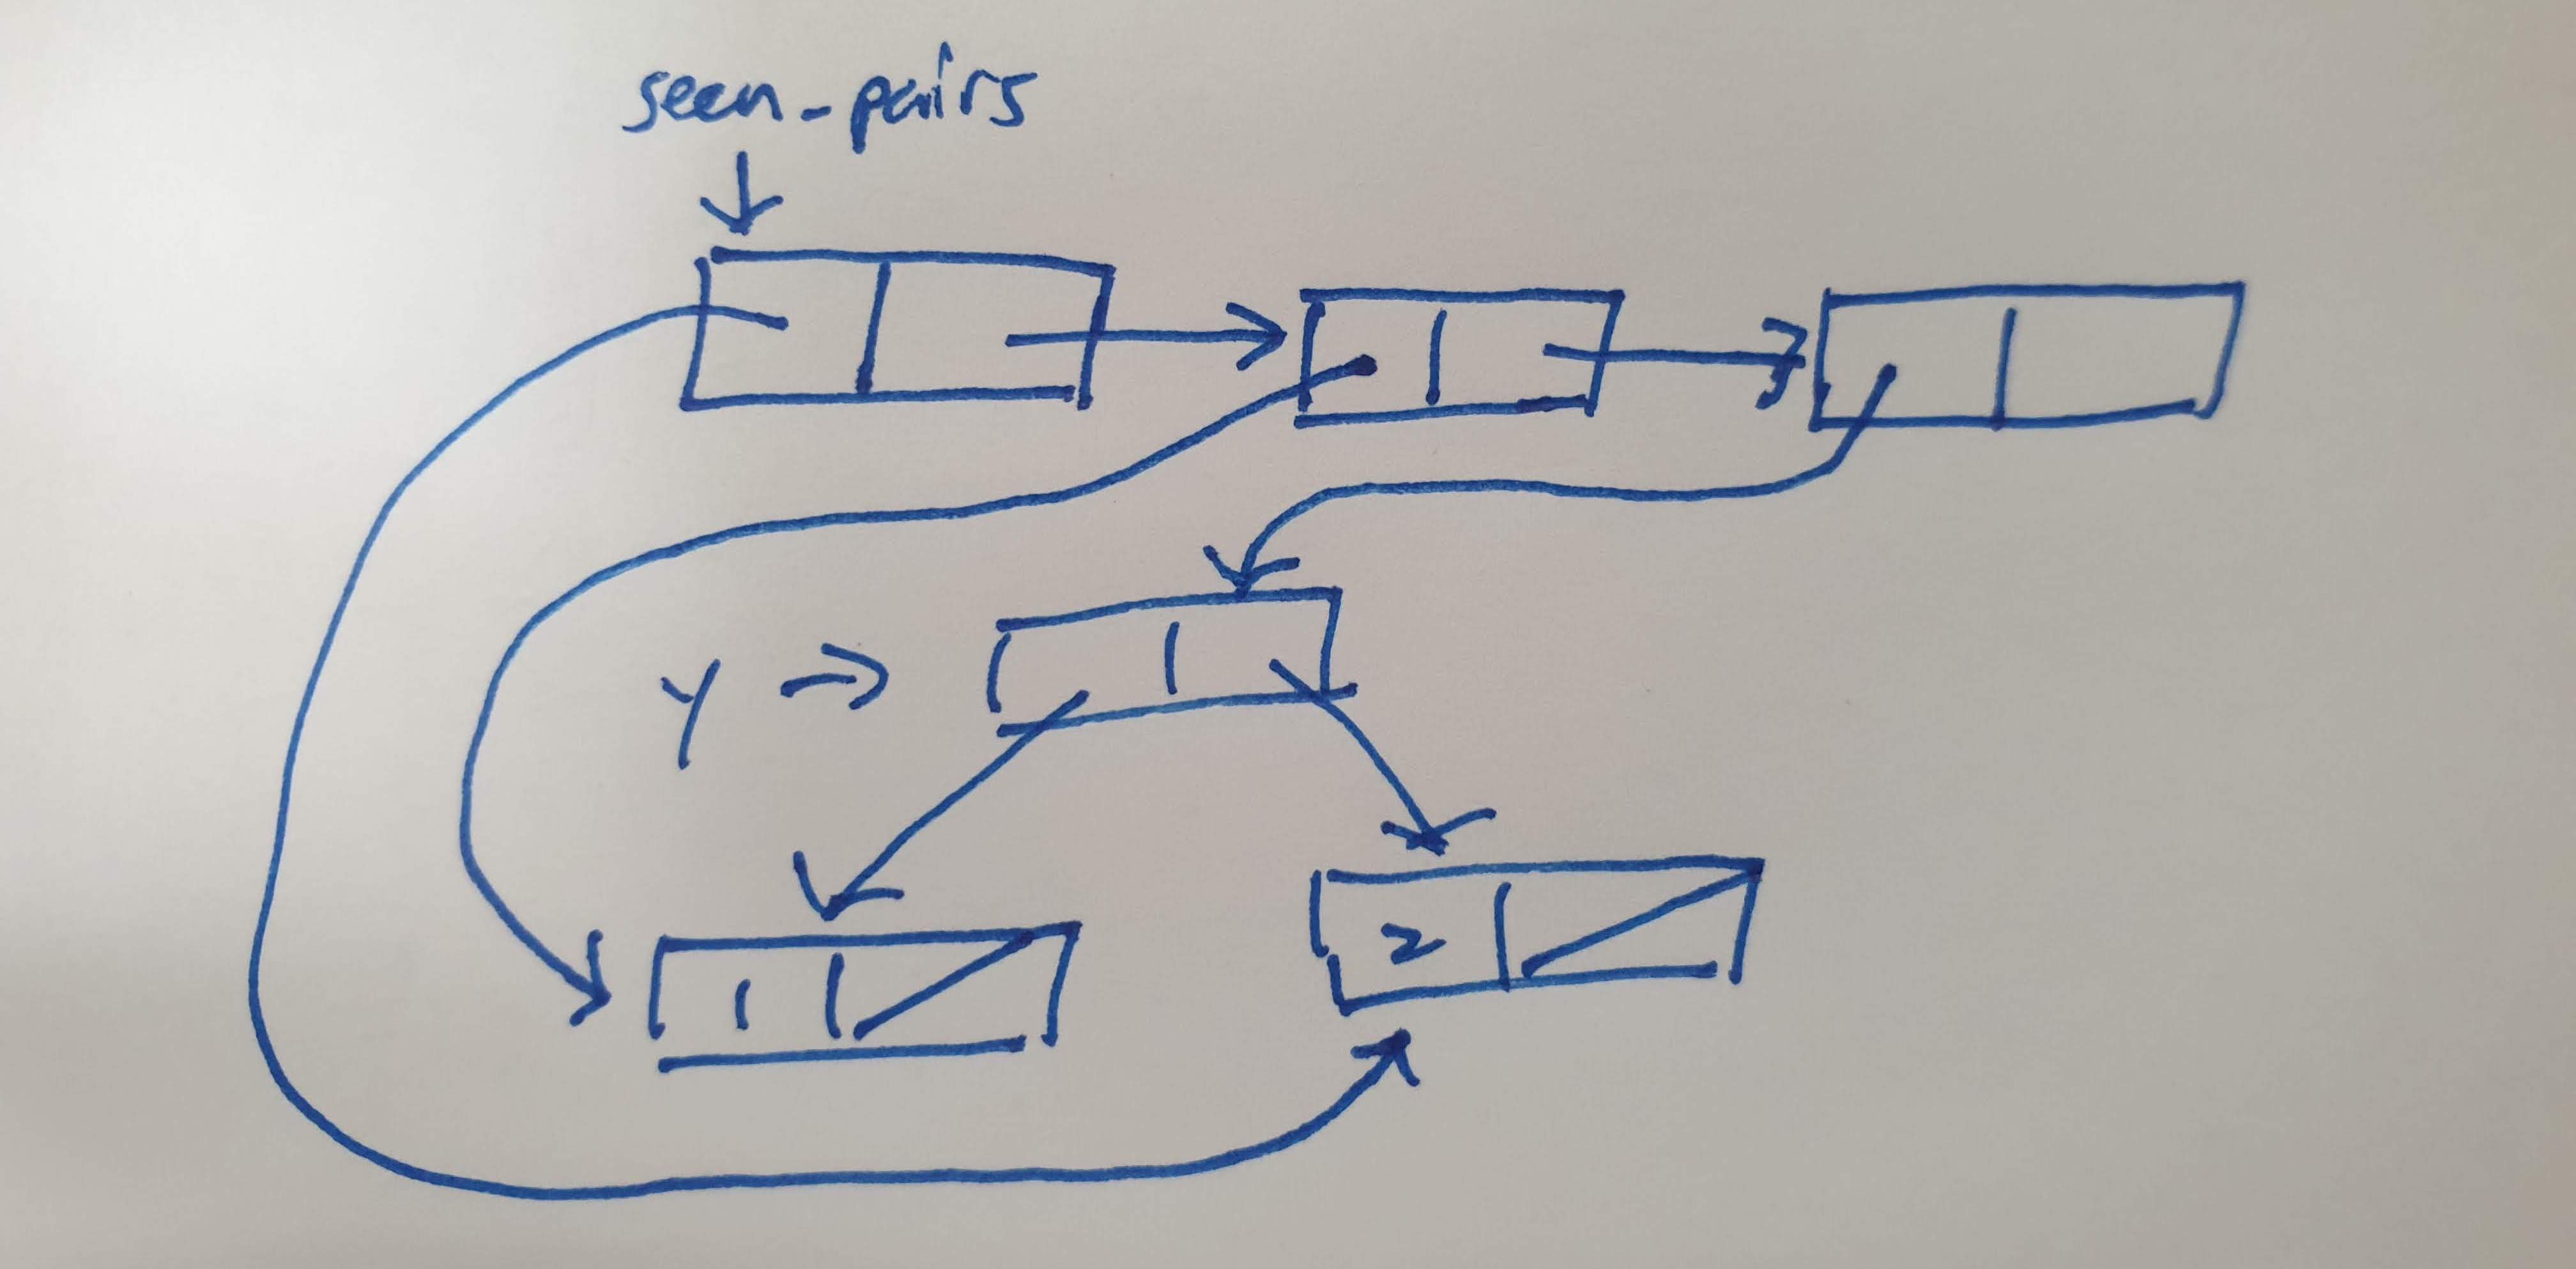 seen_pairs
y
2
1